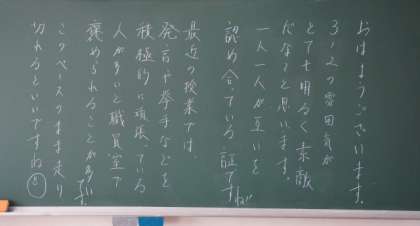 おはようございます。
3ノ2の雰囲気が
とても明るく素敵
だなぁと思います。
一人一人が互いを
認め合っている証ですね!
最近の授業では、
発言や挙手などを
積極的に頑張っている
人が多いと職員室で
褒められることが多いです。
このペースのまま走り
切れるといいですね